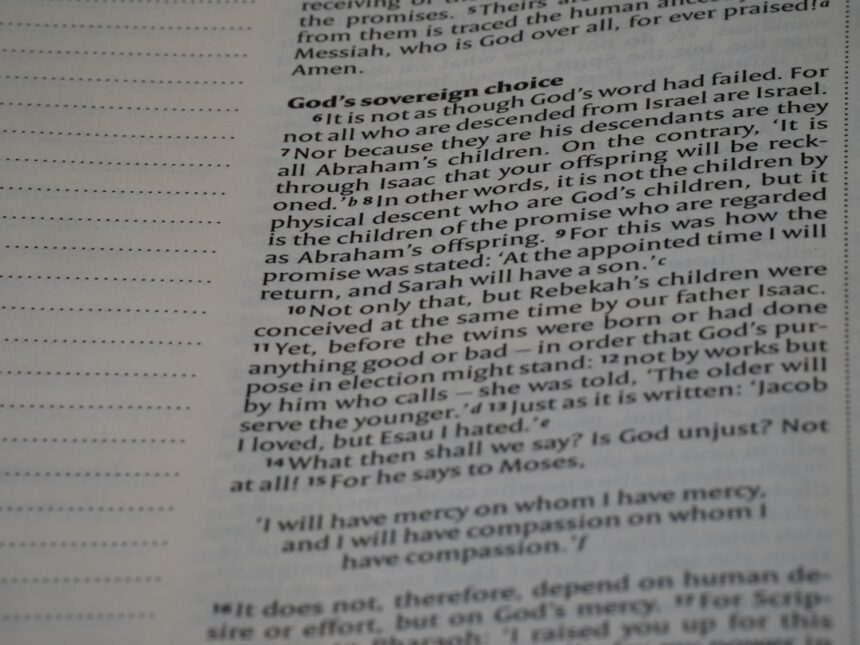 receiving of the
the promises. 5 Theirs are
from them is traced the human ancestry
Messiah, who is God over all, for ever praised!a
Amen.
God's sovereign choice
6 It is not as though God's word had failed. For
not all who are descended from Israel are Israel.
7 Nor because they are his descendants are they
all Abraham's children. On the contrary, 'It is
through Isaac that your offspring will be reck-
oned.'b 8 In other words, it is not the children by
physical descent who are God's children, but it
is the children of the promise who are regarded
as Abraham's offspring. 9 For this was how the
promise was stated: 'At the appointed time I will
return, and Sarah will have a son.'c
10 Not only that, but Rebekah's children were
conceived at the same time by our father Isaac.
11 Yet, before the twins were born or had done
anything good or bad – in order that God's pur-
pose in election might stand: 12 not by works but
by him who calls – she was told, 'The older will
serve the younger.'d 13 Just as it is written: 'Jacob
I loved, but Esau I hated.'e
14 What then shall we say? Is God unjust? Not
at all! 15 For he says to Moses,
'I will have mercy on whom I have mercy,
and I will have compassion on whom I
have compassion.'f
16 It does not, therefore, depend on human de-
sire or effort, but on God's mercy. 17 For Scrip-
Pharaoh: 'I raised you up for this
my power in